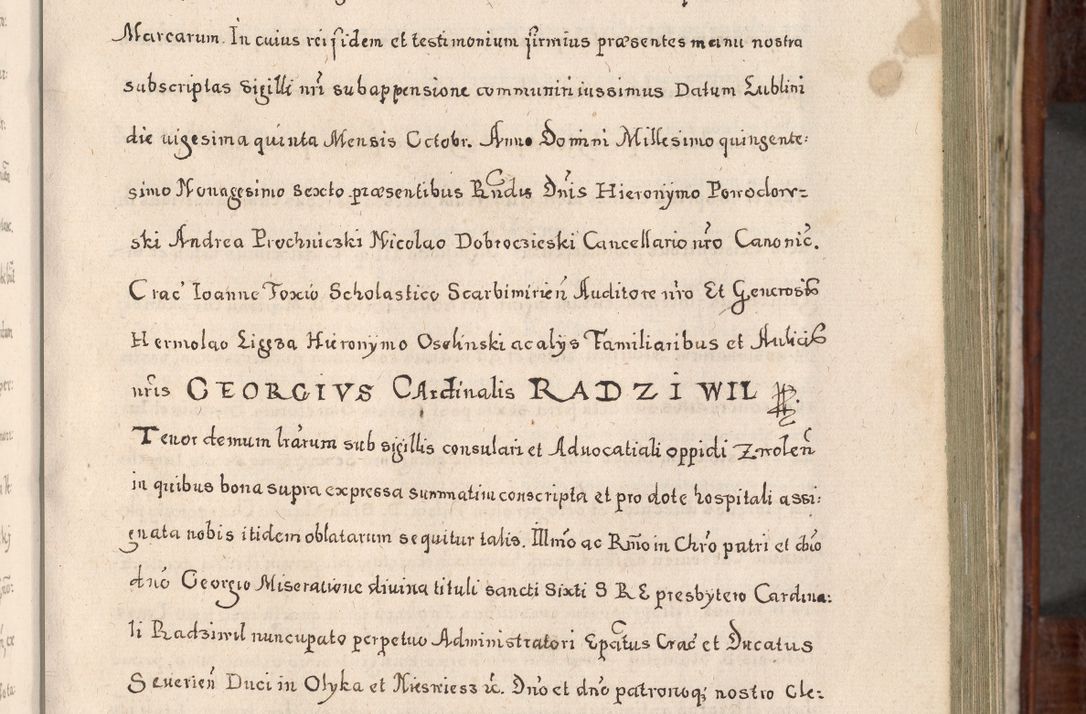 Marcarum. In cuius rei fidem et testimonium firmius præsentes manu nostra
subscriptas sigilli nr̃i subappensione communiri iussimus Datum Lublini
die uigesima quinta Mensis Octobr. Anno Domini Millesimo quingente:
simo Nonagesimo sexto præsentibus Rñdis Dñis Hieronymo Powodow=
ski Andrea Prochniczki Nicolao Dobroczieski Cancellario nr̃o Canonic̃.
Crac̃ Ioanne Foxio Scholastico Scarbimirieñ Auditore nr̃o Et Generosis
Hermolao Ligęza Hieronymo Osolinski ac alijs Familiaribus et Aulicis
nr̃is GEORGIVS CArdinalis RADZIWIL
Tenor demum lr̃arum sub sigillis consulari et Aduocatiali oppidi Zwoleñ
in quibus bona supra expressa summatim conscripta et pro dote hospitali assi:
gnata nobis itidem oblatarum sequitur talis. Illmõ ac Rmõ in Chrõ patri et dño
dnõ Georgio Miseratione diuina tituli sancti Sixti S R E presbytero Cardina:
li Radziwil nuncupato perpetuo Administratori Epatus Crac̃ et Ducatus
Seuerieñ Duci in Olyka et Nieswiesz &c. Dnõ et dnõ patronoq; nostro Cle: